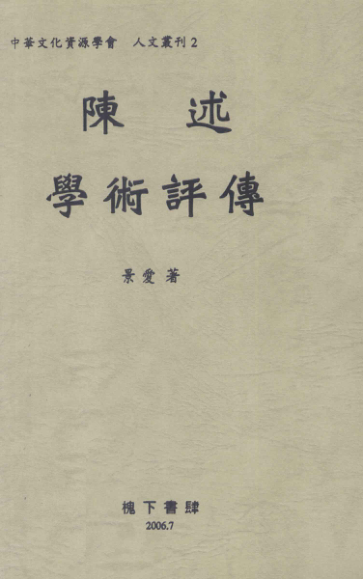 中華文化資源學會　人文叢刊2
陳　述
學術評傳
景愛著
槐下書肆
2006.7